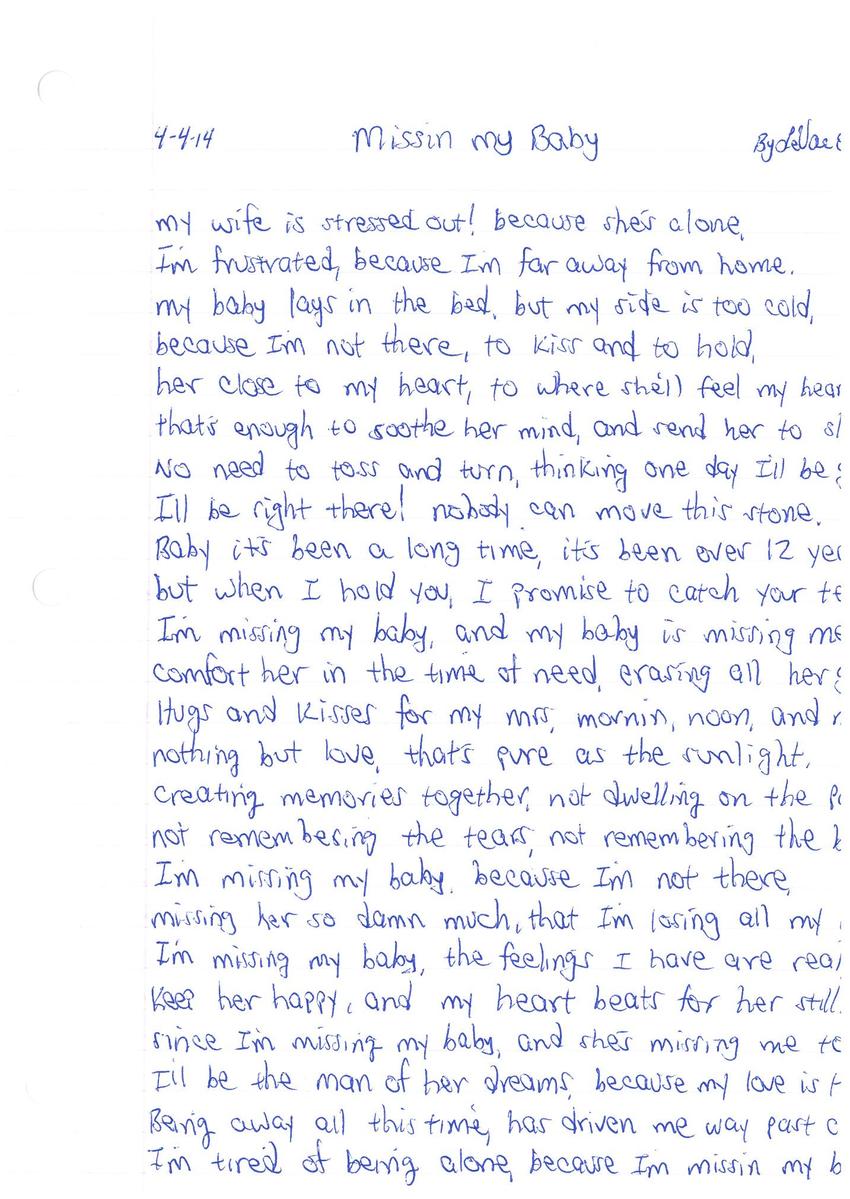 4-4-14 Missin my Baby By
my wife is stressed out! because she's alone,
I'm frustrated, because I'm far away from home.
my baby lays in the bed, but my side is too cold,
because I'm not there, to kiss and to hold,
her close to my heart, to where she'll feel my hear
that's enough to soothe her mind, and send her to sl
No need to toss and turn, thinking one day I'll be
I'll be right there! nobody can move this stone.
Baby it's been a long time, it's been over 12 yea
but when I hold you, I promise to catch your te
I'm missing my baby, and my baby is missing me
comfort her in the time of need, erasing all her
Hugs and kisses for my mrs, mornin, noon, and n
nothing but love, that's pure as the sunlight.
creating memories together, not dwelling on the pa
not remembering the tears, not remembering the
I'm missing my baby, because I'm not there,
missing her so damn much, that I'm losing all my
I'm missing my baby, the feelings I have are real
Keep her happy, and my heart beats for her still.
since I'm missing my baby, and she's missing me to
I'll be the man of her dreams, because my love is t
Being away all this time, has driven me way past c
I'm tired of being alone, because I'm missin my b